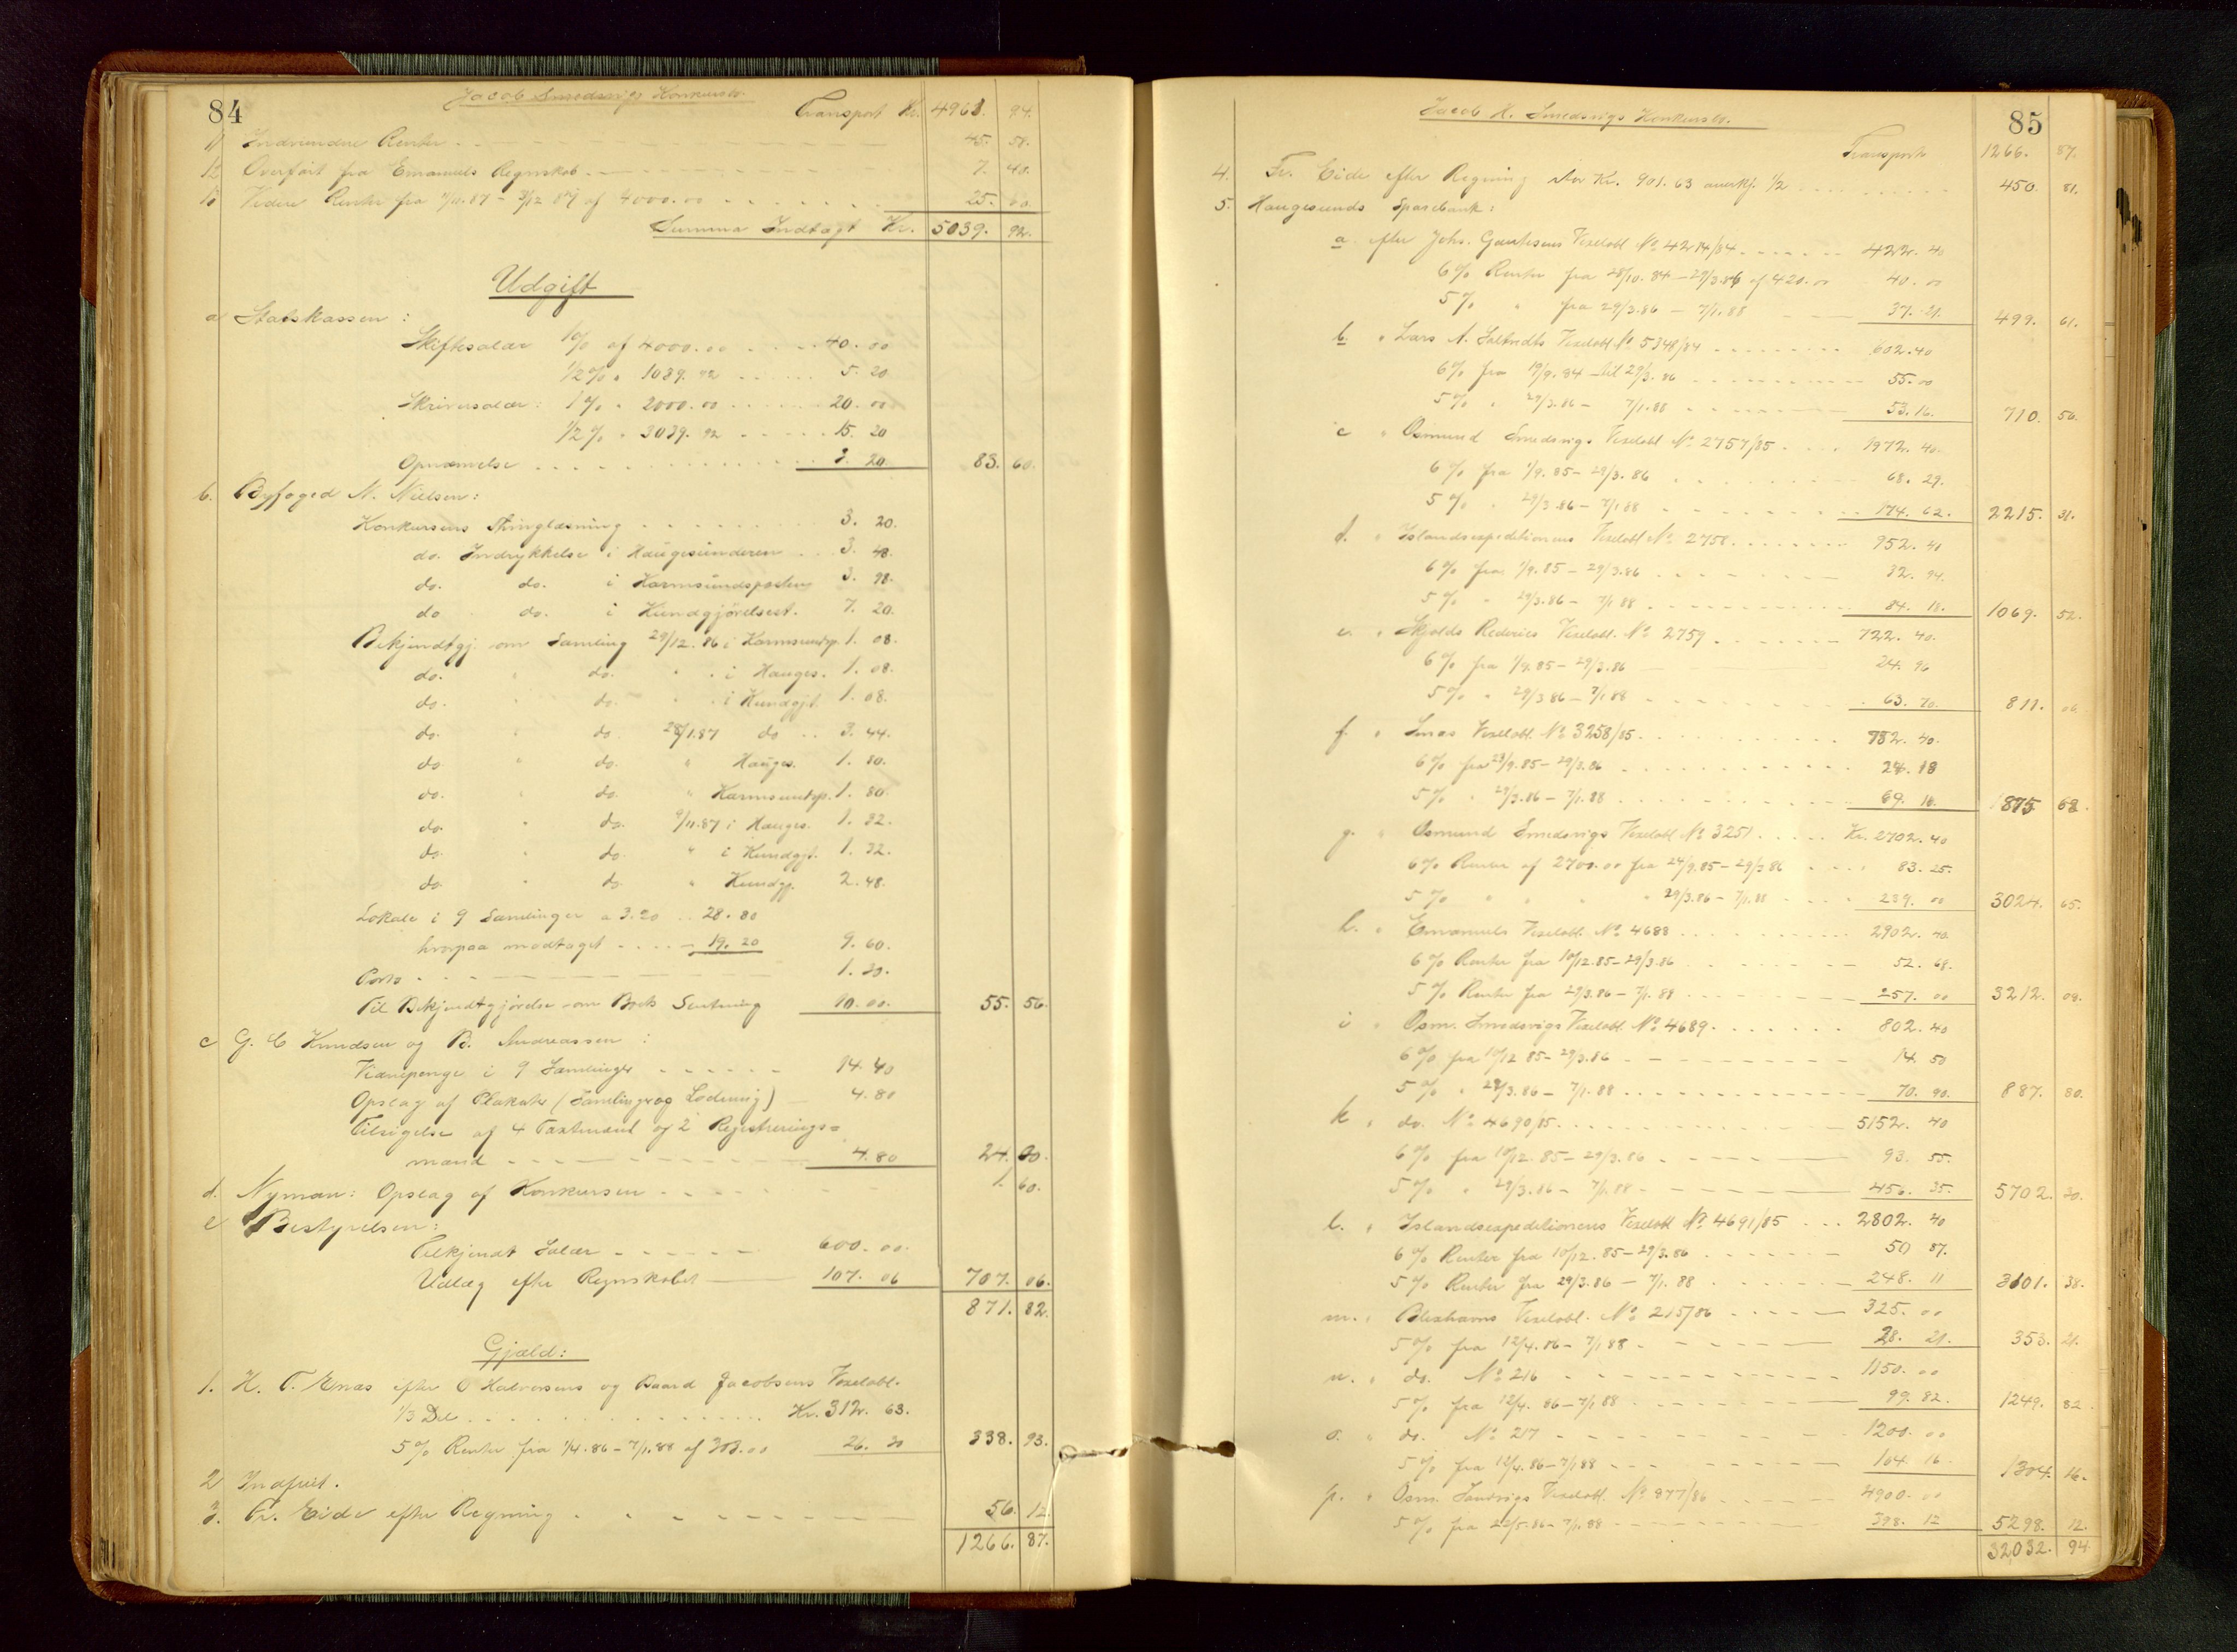 84
Jacob Smedsvigs Konkursbo.
Transport Kr. 4961. 94.
11 Indvundne Renter 45. 58.
12 Overført fra Emanuels Regnskab 7. 40.
13 Videre Renter fra 7/11.87 - 31/12 87 af 4000.00 25. 00.
Summa Indtægt Kr. 5039. 92.
Udgift
a Statskassen:
Skiftesalær 1% af 4000.00 40. 00
1/2% " 1039. 92 5. 20
Skriversalær: 1% " 2000.00 20. 00
1/2% " 3039. 92 15. 20
Opnævnelse 3. 20. 83. 60.
b. Byfoged N. Nielsen:
Konkursens Thinglæsning 3. 20.
do. Indrykkelse i Haugesunderen 3. 48.
do. do. i Karmsundsposten 3. 98.
do do. i Kundgjörelsest. 7. 20.
Bekjendtgj. om Samling 29/12.86 i Karmsundsp. 1. 08.
do. " do. " " i Hauges. 1. 08.
do. " do. " " i Kundgjt. 1. 08.
do. " do. 28/1.87 do 3. 44.
do. " do. " Hauges. 1. 80.
do. " do. " Karmsundsp. 1. 80.
do. " do. 9/11.87 i Hauges. 1. 32.
do. " do. " i Kundgjt. 1. 32.
do " do. " Kundgj. 2. 48.
Lokale i 9 Samlinger a 3.20 28. 80
hvorpaa modtaget 19. 20 9. 60.
Porto 1. 30.
Til Bekjendtgjörelse om Boets Slutning 10. 00. 55. 56.
c G. C Knudsen og B. Andreassen:
Vidnepenge i 9 Samlinger 14. 40
Opslag af Plakater (Samlinger og Lodning) 4. 80
Tilsigelse af 4 Taxtmænd og 2 Registrerings=
mænd 4. 80 24. 00.
d. Nyman: Opslag af Konkursen 1. 60.
e Bestyrelsen:
Tilkjendt Salær 600. 00.
Udlæg efter Regnskabet 107. 06 707. 06.
871. 82.
Gjæld:
1. H. T. Enæs efter O Halvorsens og Baard Jacobsens Vexelobl.
1/3 Del Kr. 312. 63.
5% Renter fra 1/4.86 - 7/1.88 af 303.00 26. 30 338. 93.
2 Indfriet.
3. Fr. Eide efter Regning 56. 12.
1266. 87.
85
Jacob H. Smedsvigs Konkursbo.
Transport 1266. 87.
4. Fr. Eide efter Regning stor Kr. 901. 63 anerkj. 1/2 450. 81.
5. Haugesunds Sparebank:
a. efter Johs. Gautesens Vexelobl No 4214/84 422. 40
6% Renter fra 28/10. 84 - 29/3.86 af 420.00 40. 00
5% " fra 29/3.86 - 7/1.88 37. 21. 499. 61.
b. " Lars A. Saltvedts Vexelobl. No 5348/84 602. 40
6% fra 19/9. 84 til 29/3. 86 55. 00
5% " 29/3.86 - 7/1.88 53. 16. 710. 56.
c " Osmund Smedsvigs Vexelobl No 2757/85 1972. 40.
6% fra 1/9. 85 - 29/3. 86 68. 29.
5% " 29/3.86 - 7/1 88 174. 62. 2215. 31.
d. " Islandsexpeditionens Vexelobl No 2758 952. 40
6% fra 1/9.85 - 29/3.86 32. 94.
5% " 29/3.86 - 7/1 88 84. 18. 1069. 52.
e. " Skjolds Rederies Vexelobl. No 2759 722. 40.
6% fra 1/9.85 - 29/3.86 24. 96
5% " 29/3 86 - 7/1.88 63. 70. 811. 06.
f. " Vexelobl. No 3258/85 782. 40.
6% fra 23/9.85 - 29/3.86 24. 18
5% " 29/3.86 - 7/1.88 69. 10. 875. 68.
g. " Osmund Smedsvigs Vexelobl No 3251 Kr. 2702. 40
6% Renter af 2700.00 fra 24/9.85 - 29/3 86 83. 25.
5% " " " " 29/3.86 - 7/1.88 239. 00 3024. 65.
h. " Emanuels Vexelobl. No 4688 2902. 40.
6% Renter fra 10/12.85 - 29/3.86 52. 68.
5% Renter fra 29/3.86 - 7/1. 88 257. 00 3212. 08.
i " Osm. Smedsvigs Vexelobl. No 4689 802. 40
6% fra 10/12 85 - 29/3.86 14. 50
5% " 29/3.86 - 7/1.88 70. 90. 887. 80.
k " do. No 4690/85 5152. 40
6% fra 10/12. 85 - 29/3.86 93. 55.
5% " 29/3.86 - 7/1.88 456. 35. 5702. 30.
l. " Islandsexpeditionens Vexelobl No 4691/85 2802. 40
6% Renter fra 10/12. 85 - 29/3.86 50 87.
5% Renter fra 29/3.86 - 7/1. 88 248. 11 3101. 38.
m. " Vexelobl. No 215/86 325. 00
5% fra 12/4.86 - 7/1 88 28. 21. 353. 21.
n. " do. No 216 1150. 00
5% fra 12/4. 86 - 7/1 88 99. 82. 1249. 82.
o. " do. No 217 1200. 00
5% fra 12/4.86 - 7/1 88 104. 16. 1304. 16.
p. " Osm. Sandvigs Vexelobl. No 877/86 4900. 00
5% fra 22/5.86 - 7/1.88 398. 12 5298. 12.
32032. 94